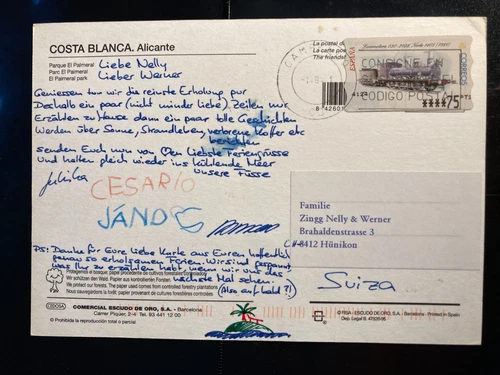 COSTA BLANCA. Alicante
Parque El Palmeral
Parc El Palmeral
El Palmeral park
Liebe Nelly
Lieber Werner
Geniessen tun wir die reinste Erholung pur
Deshalb ein paar (nicht minder liebe) Zeilen nur
Erzählen zu Hause dann ein paar tolle Geschichten
Werden über Sonne, Strandleben, verlorene Koffer etc
berichten
senden Euch nun von Den liebste Feriengrüsse
Und halten gleich wieder ins kühlende Meer
Unsere Füsse
CESARIO
JÁNOS
PS: Danke für Eure liebe Karte aus Euren hoffentlich
genau so erholsamen Ferien. Wir sind gespannt,
was Ihr zu erzählen habt, wenn wir uns das
nächste Mal sehen.
(Also auf bald?!)
Protegemos el bosque; papel procedente de cultivos forestales controlados
Wir schützen den Wald. Papier aus kontrollierten Forsten.
We protect our forests. The paper used comes from controlled forestry plantations
Nous sauvegardons la forêt: papier provenant de cultures forestières contrôlées
COMERCIAL ESCUDO DE ORO, S.A. - Barcelona
Tel. 93 441 12 00
© Prohibida la reproducción total o parcial
La postal
La carte
The friend
8 42601
CORREOS
CONSIGNE EN
CODIGO POSTAL
****75
PTS
Familie
Zingg Nelly & Werner
Brahaldenstrasse 3
CH-8412 Hünikon
Suiza
© FISA - ESCUDO DE ORO, S.A. - Barcelona - Printed in Spain